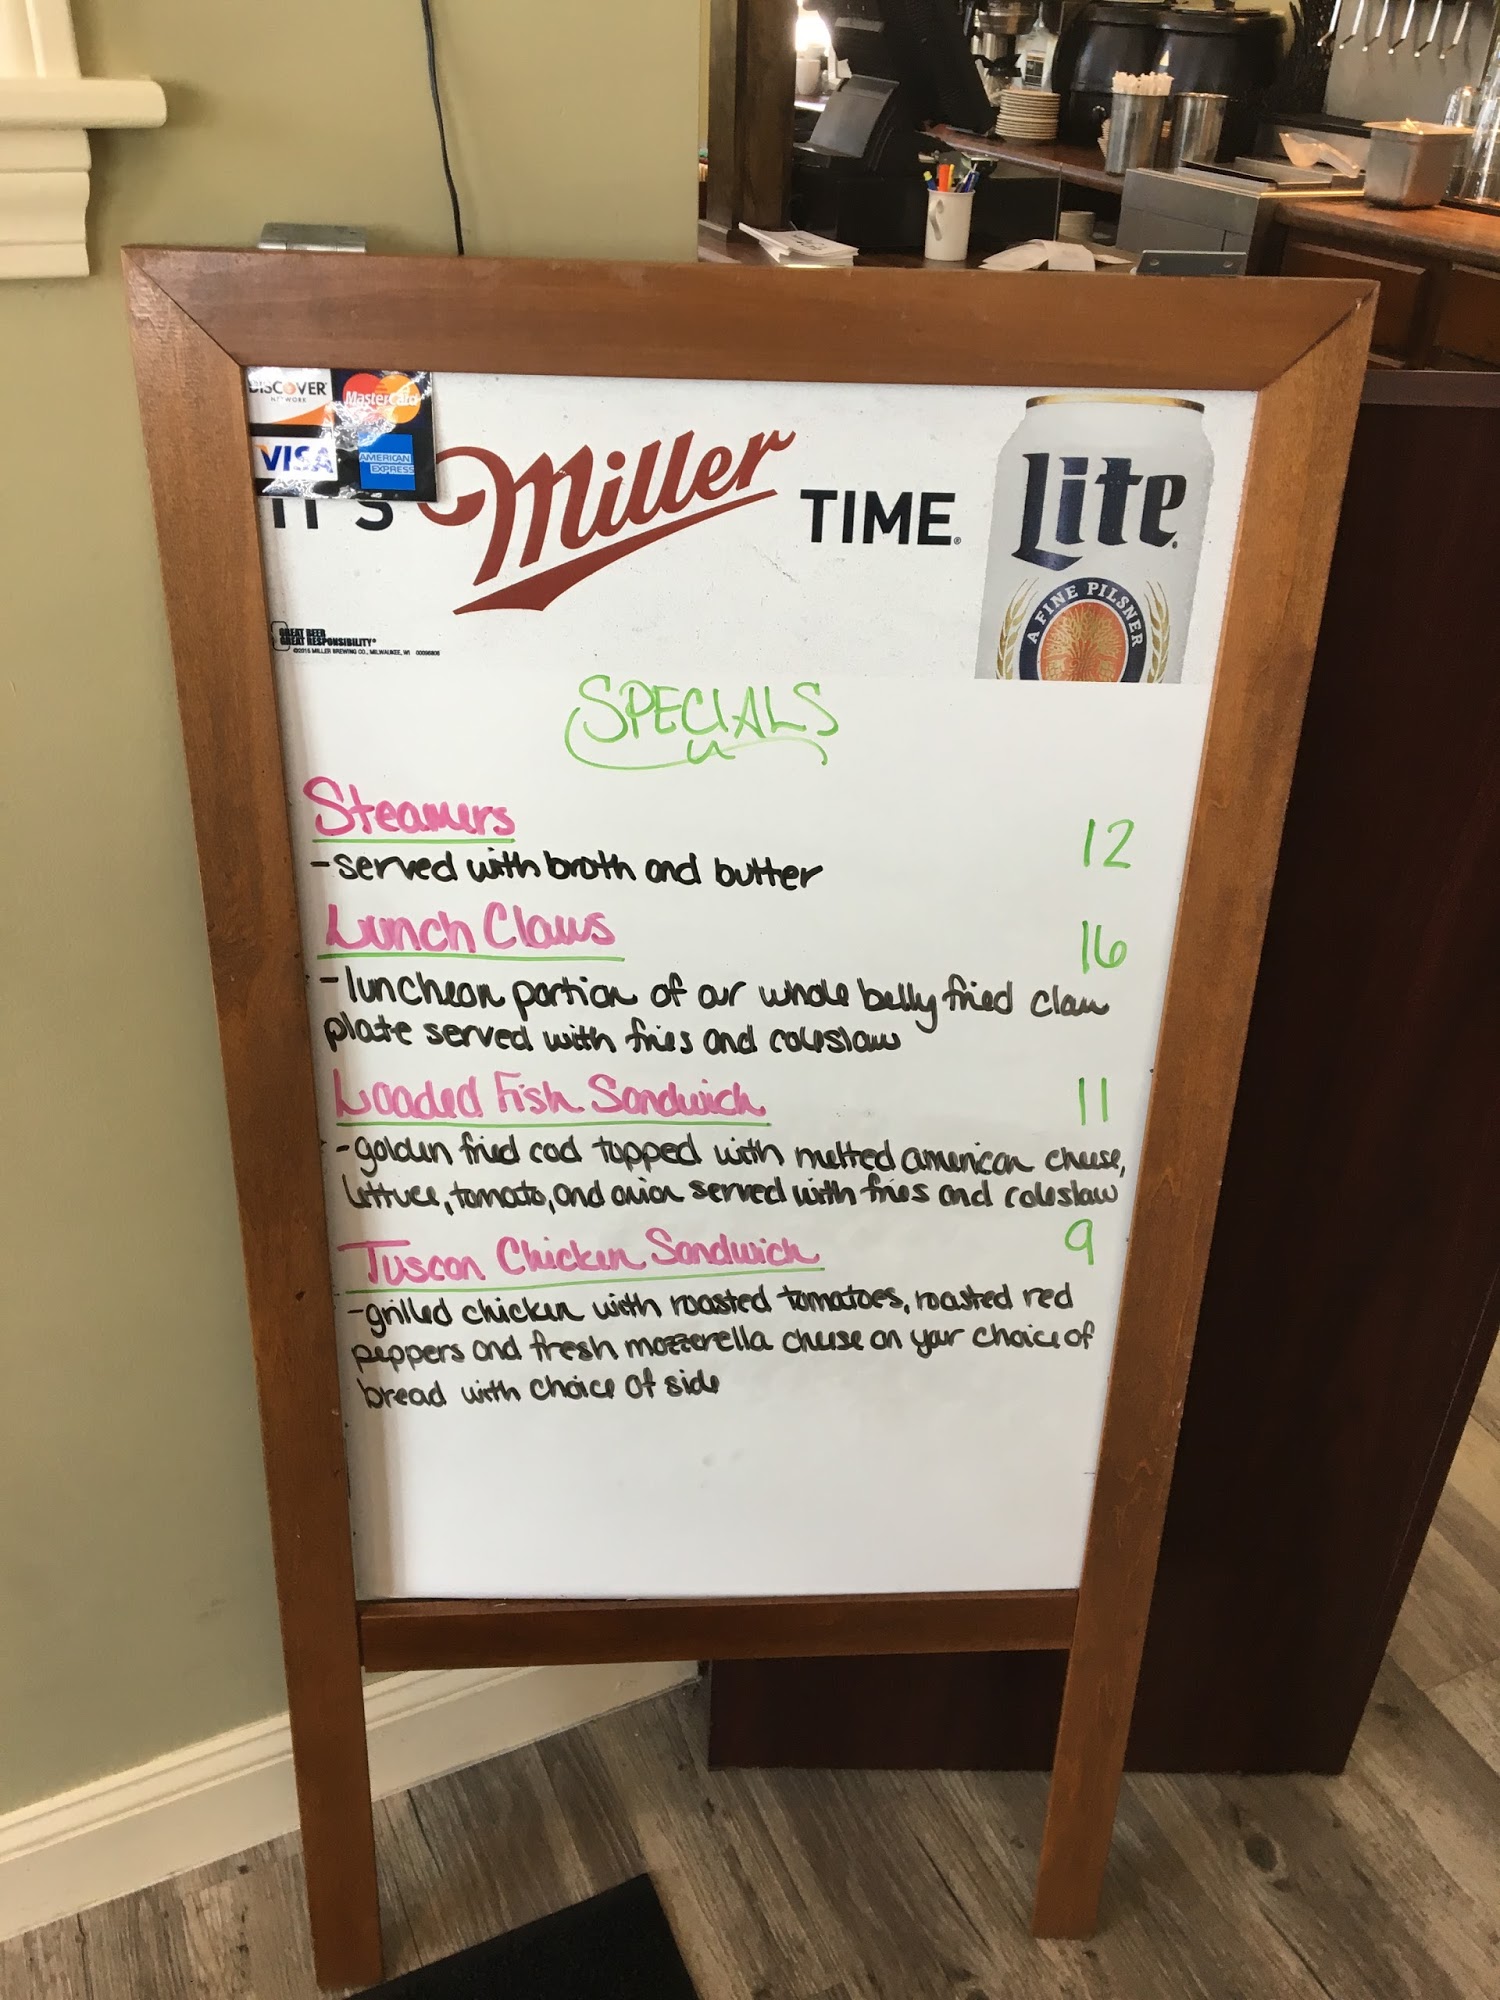 DISCOVER MasterCard
NETWORK
VISA AMERICAN EXPRESS
IT'S Miller TIME.
Lite
A FINE PILSNER
GREAT BEER
GREAT RESPONSIBILITY®
©2015 MILLER BREWING CO., MILWAUKEE, WI
SPECIALS
Steamers 12
-served with broth and butter
Lunch Claws 16
-luncheon portion of our whole belly fried clam
plate served with fries and coleslaw
Loaded Fish Sandwich 11
-golden fried cod topped with melted american cheese,
lettuce, tomato, and onion served with fries and coleslaw
Tuscan Chicken Sandwich 9
-grilled chicken with roasted tomatoes, roasted red
peppers and fresh mozzerella cheese on your choice of
bread with choice of side